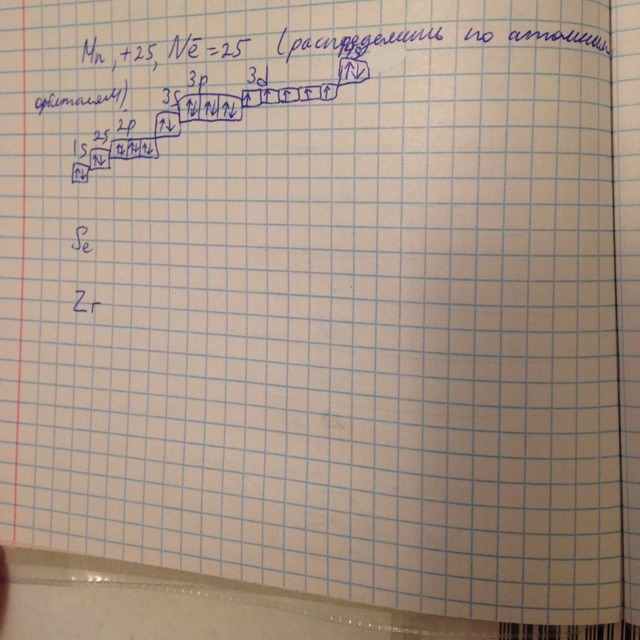 Mn, +25, Nē = 25 (распределить по атомным
орбиталям)
3s 3p 3d
1s 2s 2p
Se
Zr